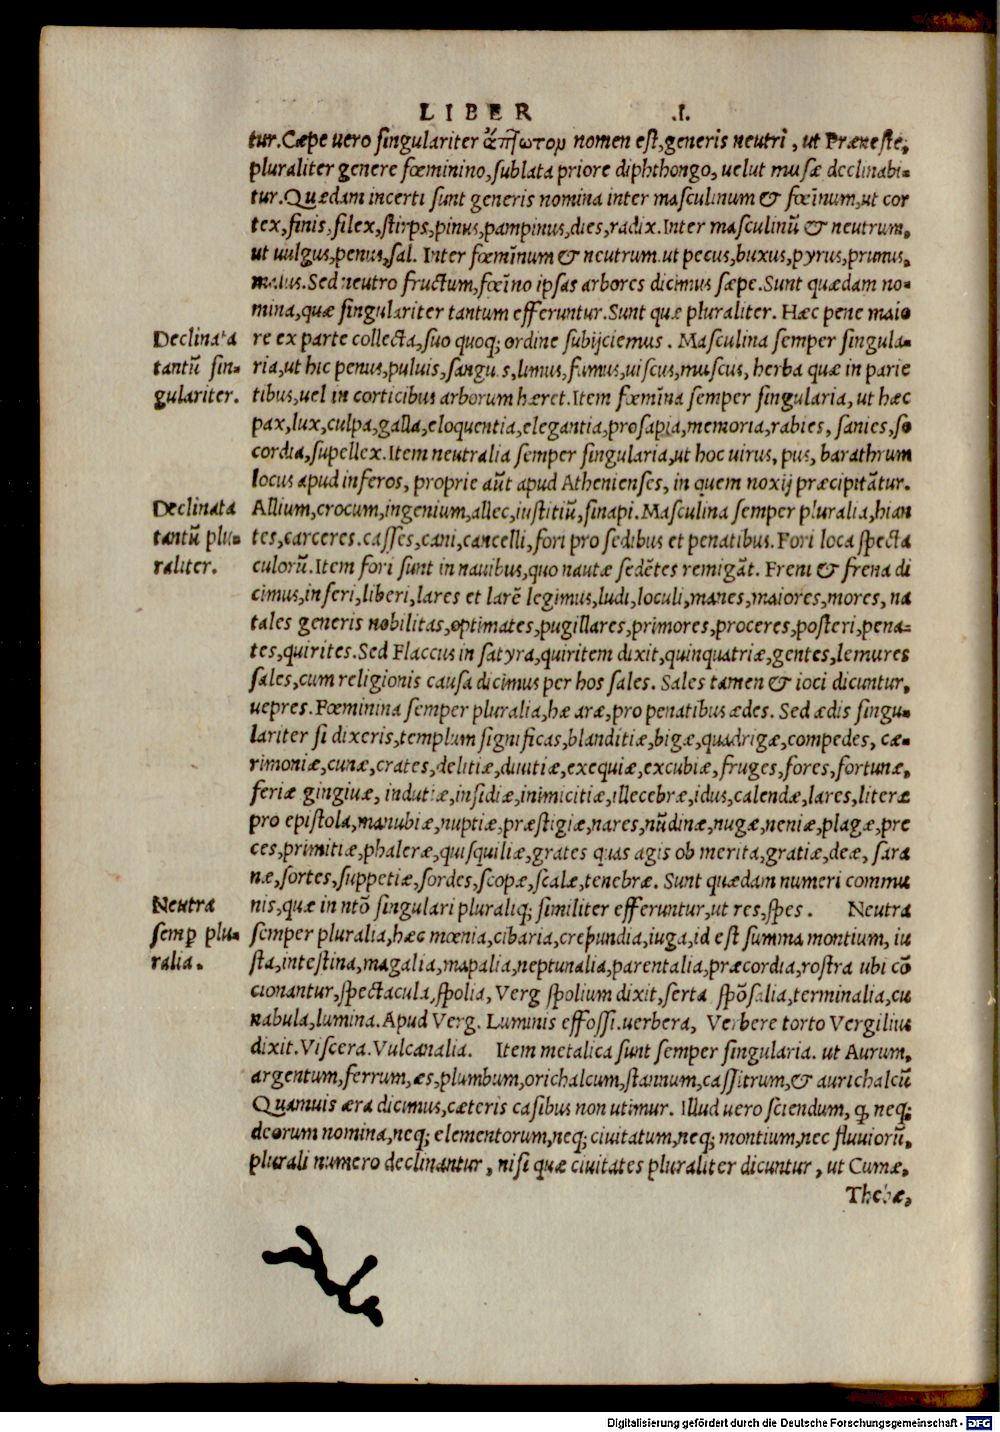 LIBER .I.
tur. Cæpe uero singulariter ἄπτωτον nomen est, generis neutri, ut Præneste,
pluraliter genere fœminino, sublata priore diphthongo, uelut musæ declinabi-
tur. Quædam incerti sunt generis nomina inter masculinum & fœīnum, ut cor
tex, finis, silex, stirps, pinus, pampinus, dies, radix. Inter masculinū & neutrum,
ut uulgus, penus, sal. Inter fœmīnum & neutrum. ut pecus, buxus, pyrus, prunus,
malus. Sed neutro fructum, fœīno ipsas arbores dicimus sæpe. Sunt quædam no-
mina, quæ singulariter tantum efferuntur. Sunt quæ pluraliter. Hæc pene maio
Declinata re ex parte collecta, suo quoq; ordine subijciemus. Masculina semper singula-
tantū sin- ria, ut hic penus, puluis, sanguis, limus, fumus, uiscus, muscus, herba quæ in parie
gulariter. tibus, uel in corticibus arborum hæret. Item fœmīna semper singularia, ut hæc
pax, lux, culpa, galla, eloquentia, elegantia, prosapia, memoria, rabies, sanies, so
cordia, supellex. Item neutralia semper singularia, ut hoc uirus, pus, barathrum
locus apud inferos, proprie aūt apud Athenienses, in quem noxij præcipitātur.
Declinata Allium, crocum, ingenium, allec, iustitiū, sinapi. Masculina semper pluralia, hian
tantū plu- tes, carceres. casses, cani, cancelli, fori pro sedibus et penatibus. Fori loca specta
raliter. culorū. Item fori sunt in nauibus, quo nautæ sedētes remigāt. Freni & frena di
cimus, inferi, liberi, lares et larē legimus, ludi, loculi, manes, maiores, mores, na
tales generis nobilitas, optimates, pugillares, primores, proceres, posteri, pena-
tes, quirites. Sed Flaccus in satyra, quiritem dixit, quinquatriæ, gentes, lemures
sales, cum religionis causa dicimus per hos sales. Sales tamen & ioci dicuntur,
uepres. Fœminina semper pluralia, hæ aræ, pro penatibus ædes. Sed ædis singu-
lariter si dixeris, templum significas, blanditiæ, bigæ, quadrigæ, compedes, cæ-
rimoniæ, cunæ, crates, delitiæ, diuitiæ, exequiæ, excubiæ, fruges, fores, fortunæ,
feriæ gingiuæ, indutiæ, insidiæ, inimicitiæ, illecebræ, idus, calendæ, lares, literæ
pro epistola, manubiæ, nuptiæ, præstigiæ, nares, nūdinæ, nugæ, neniæ, plagæ, pre
ces, primitiæ, phaleræ, quisquiliæ, grates quas agis ob merita, gratiæ, deæ, sara
næ, sortes, suppetiæ, sordes, scopæ, scalæ, tenebræ. Sunt quædam numeri commu
Neutra nis, quæ in ntō singulari pluraliq; similiter efferuntur, ut res, spes. Neutra
semꝑ plu- semper pluralia, hæc mœnia, cibaria, crepundia, iuga, id est summa montium, iu
ralia. sta, intestina, magalia, mapalia, neptunalia, parentalia, præcordia, rostra ubi cō
cionantur, spectacula, spolia, Verg spolium dixit, serta spōsalia, terminalia, cu
nabula, lumina. Apud Verg. Luminis effossi. uerbera, Verbere torto Vergilius
dixit. Viscera. Vulcanalia. Item metalica sunt semper singularia. ut Aurum,
argentum, ferrum, æs, plumbum, orichalcum, stannum, cassitrum, & aurichalcū
Quamuis æra dicimus, cæteris casibus non utimur. Illud uero sciendum, ꝙ neq;
deorum nomina, neq; elementorum, neq; ciuitatum, neq; montium, nec fluuiorū,
plurali numero declinantur, nisi quæ ciuitates pluraliter dicuntur, ut Cumæ,
Thebæ,
Digitalisierung gefördert durch die Deutsche Forschungsgemeinschaft - DFG